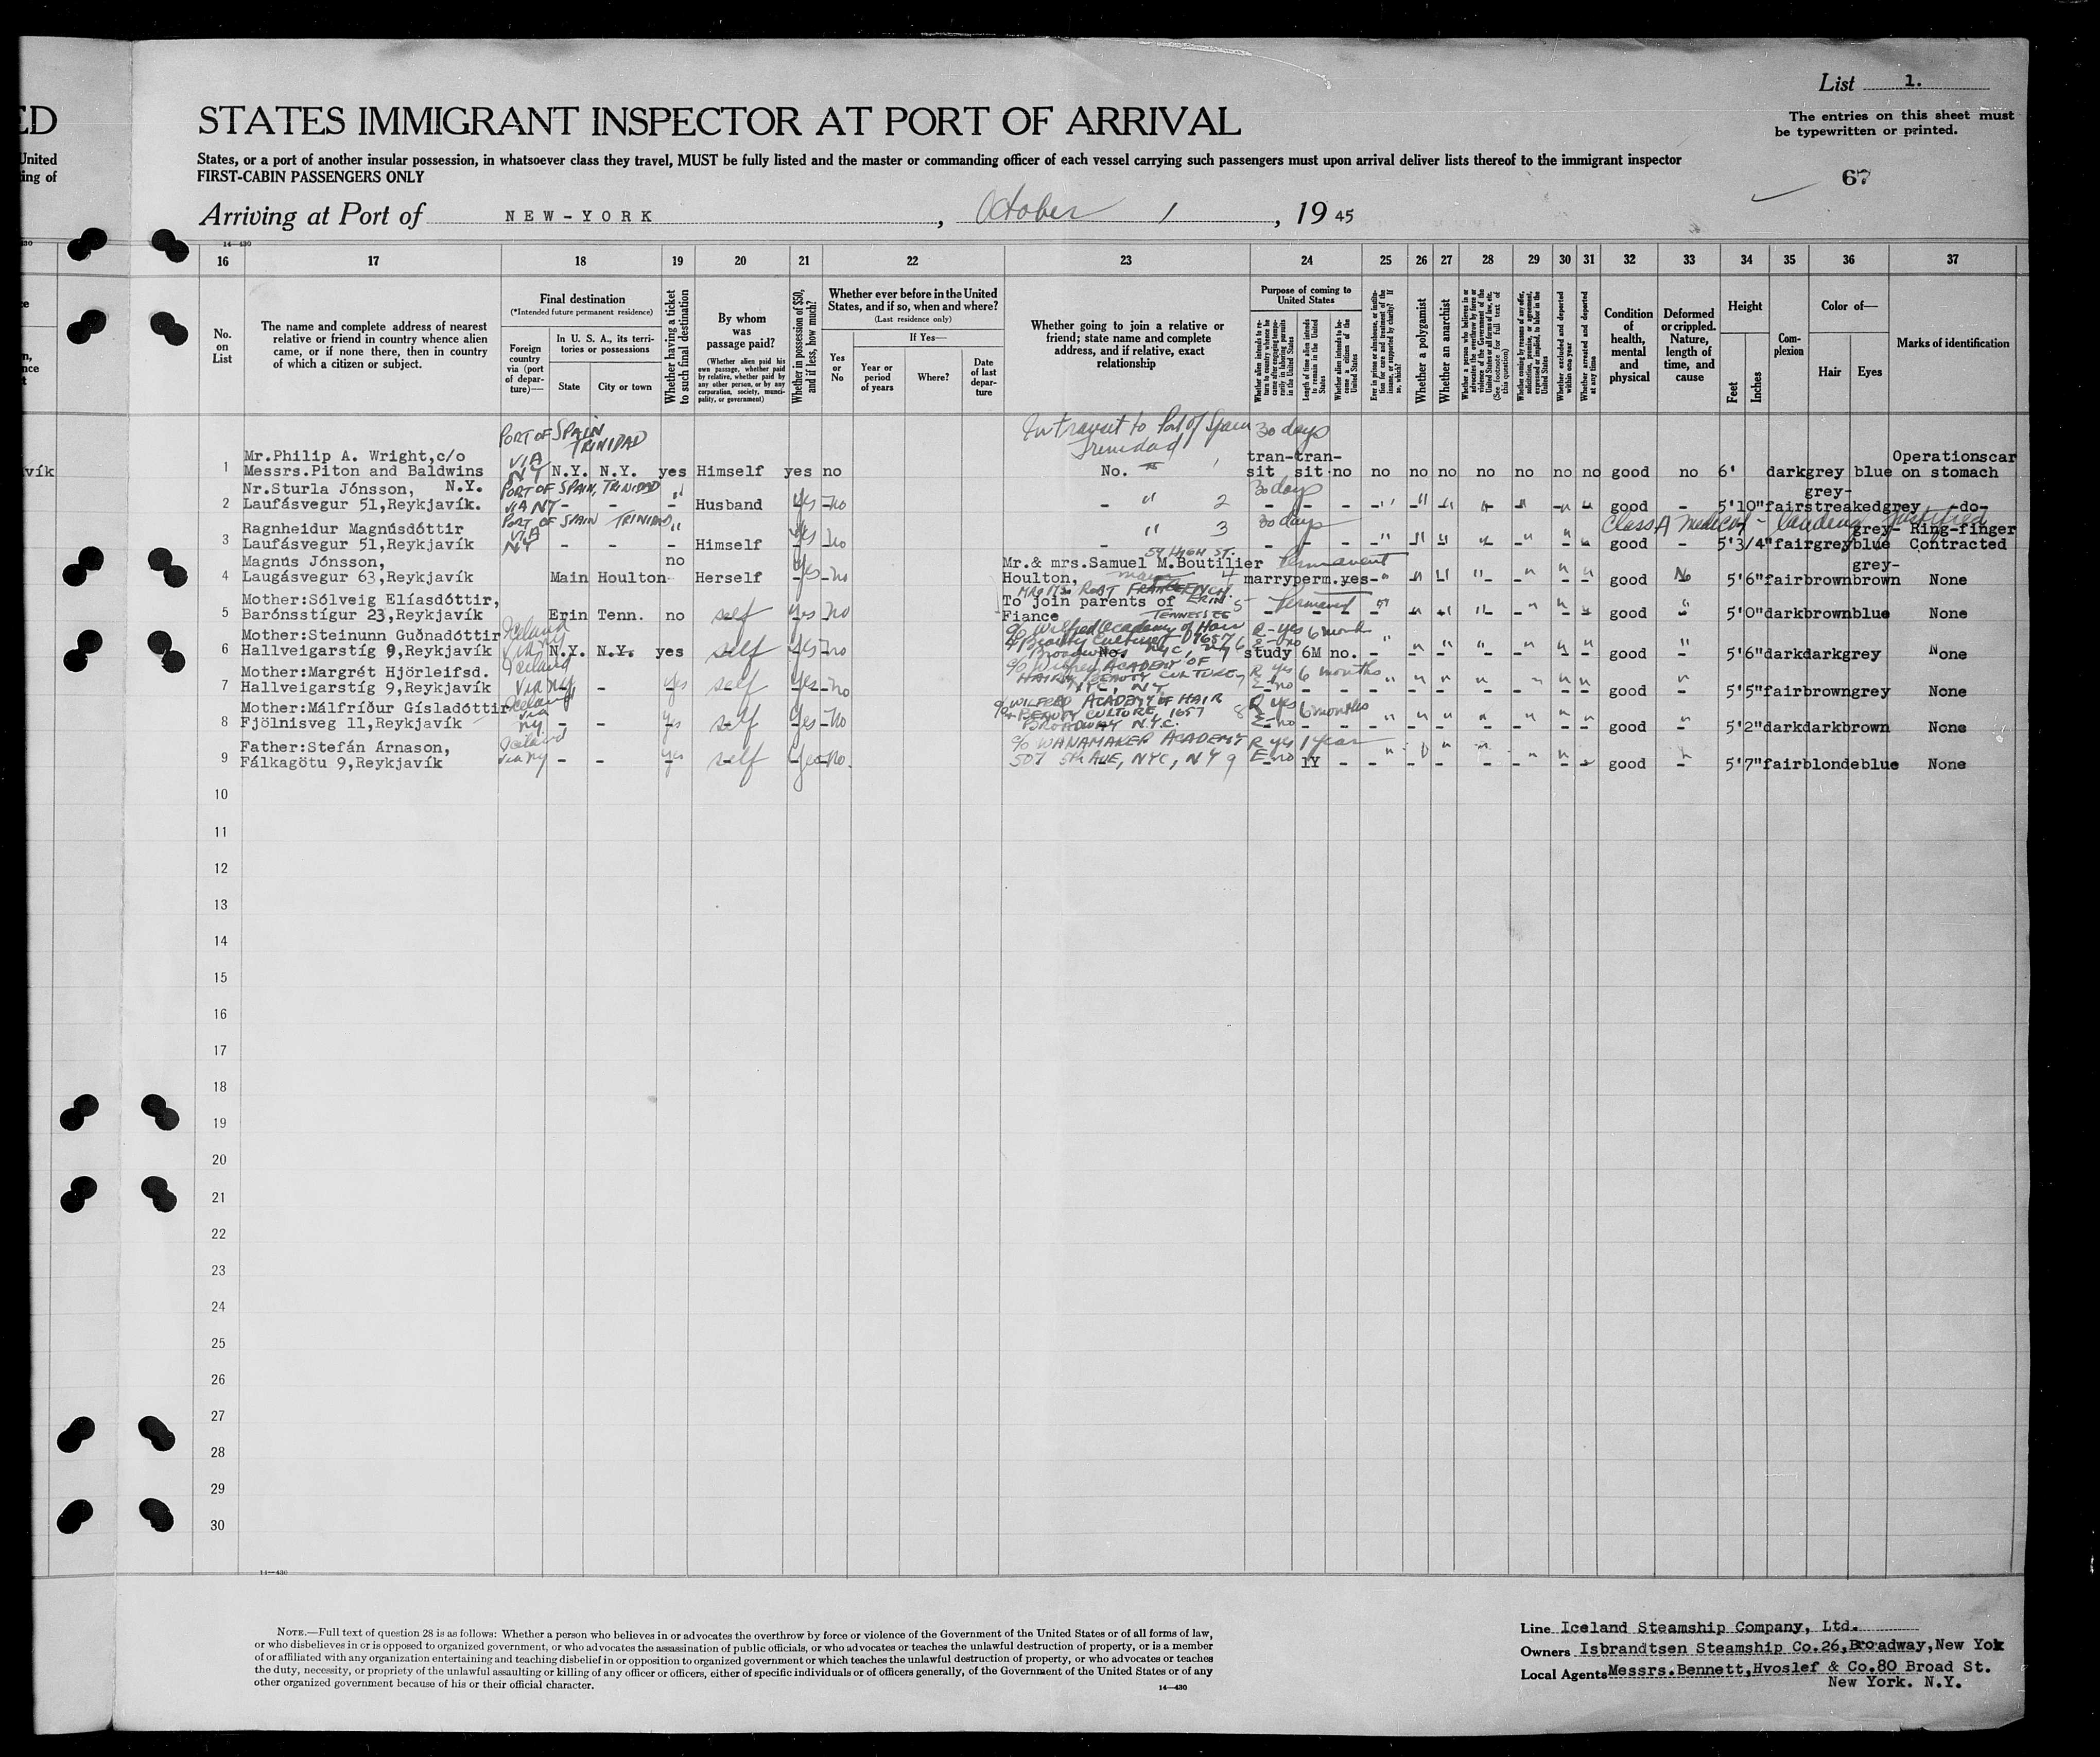 List 1.
STATES IMMIGRANT INSPECTOR AT PORT OF ARRIVAL
The entries on this sheet must
be typewritten or printed.
States, or a port of another insular possession, in whatsoever class they travel, MUST be fully listed and the master or commanding officer of each vessel carrying such passengers must upon arrival deliver lists thereof to the immigrant inspector
FIRST-CABIN PASSENGERS ONLY
67
Arriving at Port of NEW-YORK, October 1, 1945
14—430
16 17 18 19 20 21 22 23 24 25 26 27 28 29 30 31 32 33 34 35 36 37
No. on List
The name and complete address of nearest
relative or friend in country whence alien
came, or if none there, then in country
of which a citizen or subject.
Final destination
(*Intended future permanent residence)
Foreign country via (port of departure)—
In U. S. A., its territories or possessions
State
City or town
Whether having a ticket to such final destination
By whom was passage paid?
(Whether alien paid his own passage, whether paid by relative, whether paid by any other person, or by any corporation, society, municipality, or government)
Whether in possession of $50, and if less, how much?
Whether ever before in the United
States, and if so, when and where?
(Last residence only)
Yes or No
If Yes—
Year or period of years
Where?
Date of last departure
Whether going to join a relative or
friend; state name and complete
address, and if relative, exact
relationship
Purpose of coming to United States
Length of time alien intends to remain in the United States
Whether alien intends to become a citizen of the United States
Whether a polygamist
Whether an anarchist
Whether excluded and deported within one year
Whether arrested and deported at any time
Condition of health, mental and physical
Deformed or crippled. Nature, length of time, and cause
Height
Feet
Inches
Complexion
Color of—
Hair
Eyes
Marks of identification
PORT OF SPAIN TRINIDAD VIA NY
In transit to Port of Spain Trinidad
30 days
1 Mr.Philip A. Wright,c/o
Messrs.Piton and Baldwins N.Y. N.Y. N.Y. yes Himself yes no No. 1 transit transit no no no no no no no no good no 6' dark grey blue Operationscar on stomach
2 Nr.Sturla Jónsson,
Laufásvegur 51,Reykjavík. PORT OF SPAIN, TRINIDAD VIA NY - - " Husband yes no - " 2 30 days good - 5'10" fair grey-streaked grey -do-
Class A medical - landing justified
3 Ragnheidur Magnúsdóttir
Laufásvegur 51,Reykjavík PORT OF SPAIN TRINIDAD VIA NY - - " Himself yes no - " 3 30 days good - 5'3/4" fair grey grey-blue Ring-finger Contracted
4 Magnús Jónsson,
Laugásvegur 63,Reykjavík Main Houlton no Herself yes no Mr.& mrs.Samuel M.Boutilier 59 HIGH ST. Houlton, Maine 4 marry perm. yes Permanent good No 5'6" fair brown grey-brown None
5 Mother:Sólveig Elíasdóttir,
Barónsstígur 23,Reykjavík Erin Tenn. no self yes no To join parents of Fiance ERIN TENNESSEE 5 Permanent good " 5'0" dark brown blue None
6 Mother:Steinunn Guðnadóttir
Hallveigarstíg 9,Reykjavík Iceland via NY N.Y. N.Y. yes self yes no c/o Wilfred Academy of Hair & Beauty Culture 1657 Broadway NYC, NY 6 No. R-yes E-no 6 month study 6M no. good " 5'6" dark dark grey None
7 Mother:Margrét Hjörleifsd.
Hallveigarstíg 9,Reykjavík Iceland via NY - yes self yes no ACADEMY OF HAIR & BEAUTY CULTURE NYC, NY 7 R yes E no 6 months good " 5'5" fair brown grey None
8 Mother:Málfríður Gísladóttir
Fjölnisveg 11,Reykjavík Iceland via NY - - yes self yes no c/o WILFRED ACADEMY OF HAIR & BEAUTY CULTURE, 1657 BROADWAY N.Y.C. 8 R yes E-no 6 months good " 5'2" dark dark brown None
9 Father:Stefán Árnason,
Fálkagötu 9,Reykjavík Iceland via NY - - yes self yes no. c/o WANAMAKER ACADEMY 507 5th AVE, NYC, NY 9 R yes E no 1 year 1Y good " 5'7" fair blonde blue None
10
11
12
13
14
15
16
17
18
19
20
21
22
23
24
25
26
27
28
29
30
14—430
NOTE.—Full text of question 28 is as follows: Whether a person who believes in or advocates the overthrow by force or violence of the Government of the United States or of all forms of law,
or who disbelieves in or is opposed to organized government, or who advocates the assassination of public officials, or who advocates or teaches the unlawful destruction of property, or is a member
of or affiliated with any organization entertaining and teaching disbelief in or opposition to organized government or which teaches the unlawful destruction of property, or who advocates or teaches
the duty, necessity, or propriety of the unlawful assaulting or killing of any officer or officers, either of specific individuals or of officers generally, of the Government of the United States or of any
other organized government because of his or their official character.
14—430
Line Iceland Steamship Company, Ltd.
Owners Isbrandtsen Steamship Co.26,Broadway,New Yok
Local Agents Messrs.Bennett,Hvoslef & Co.80 Broad St.
New York. N.Y.